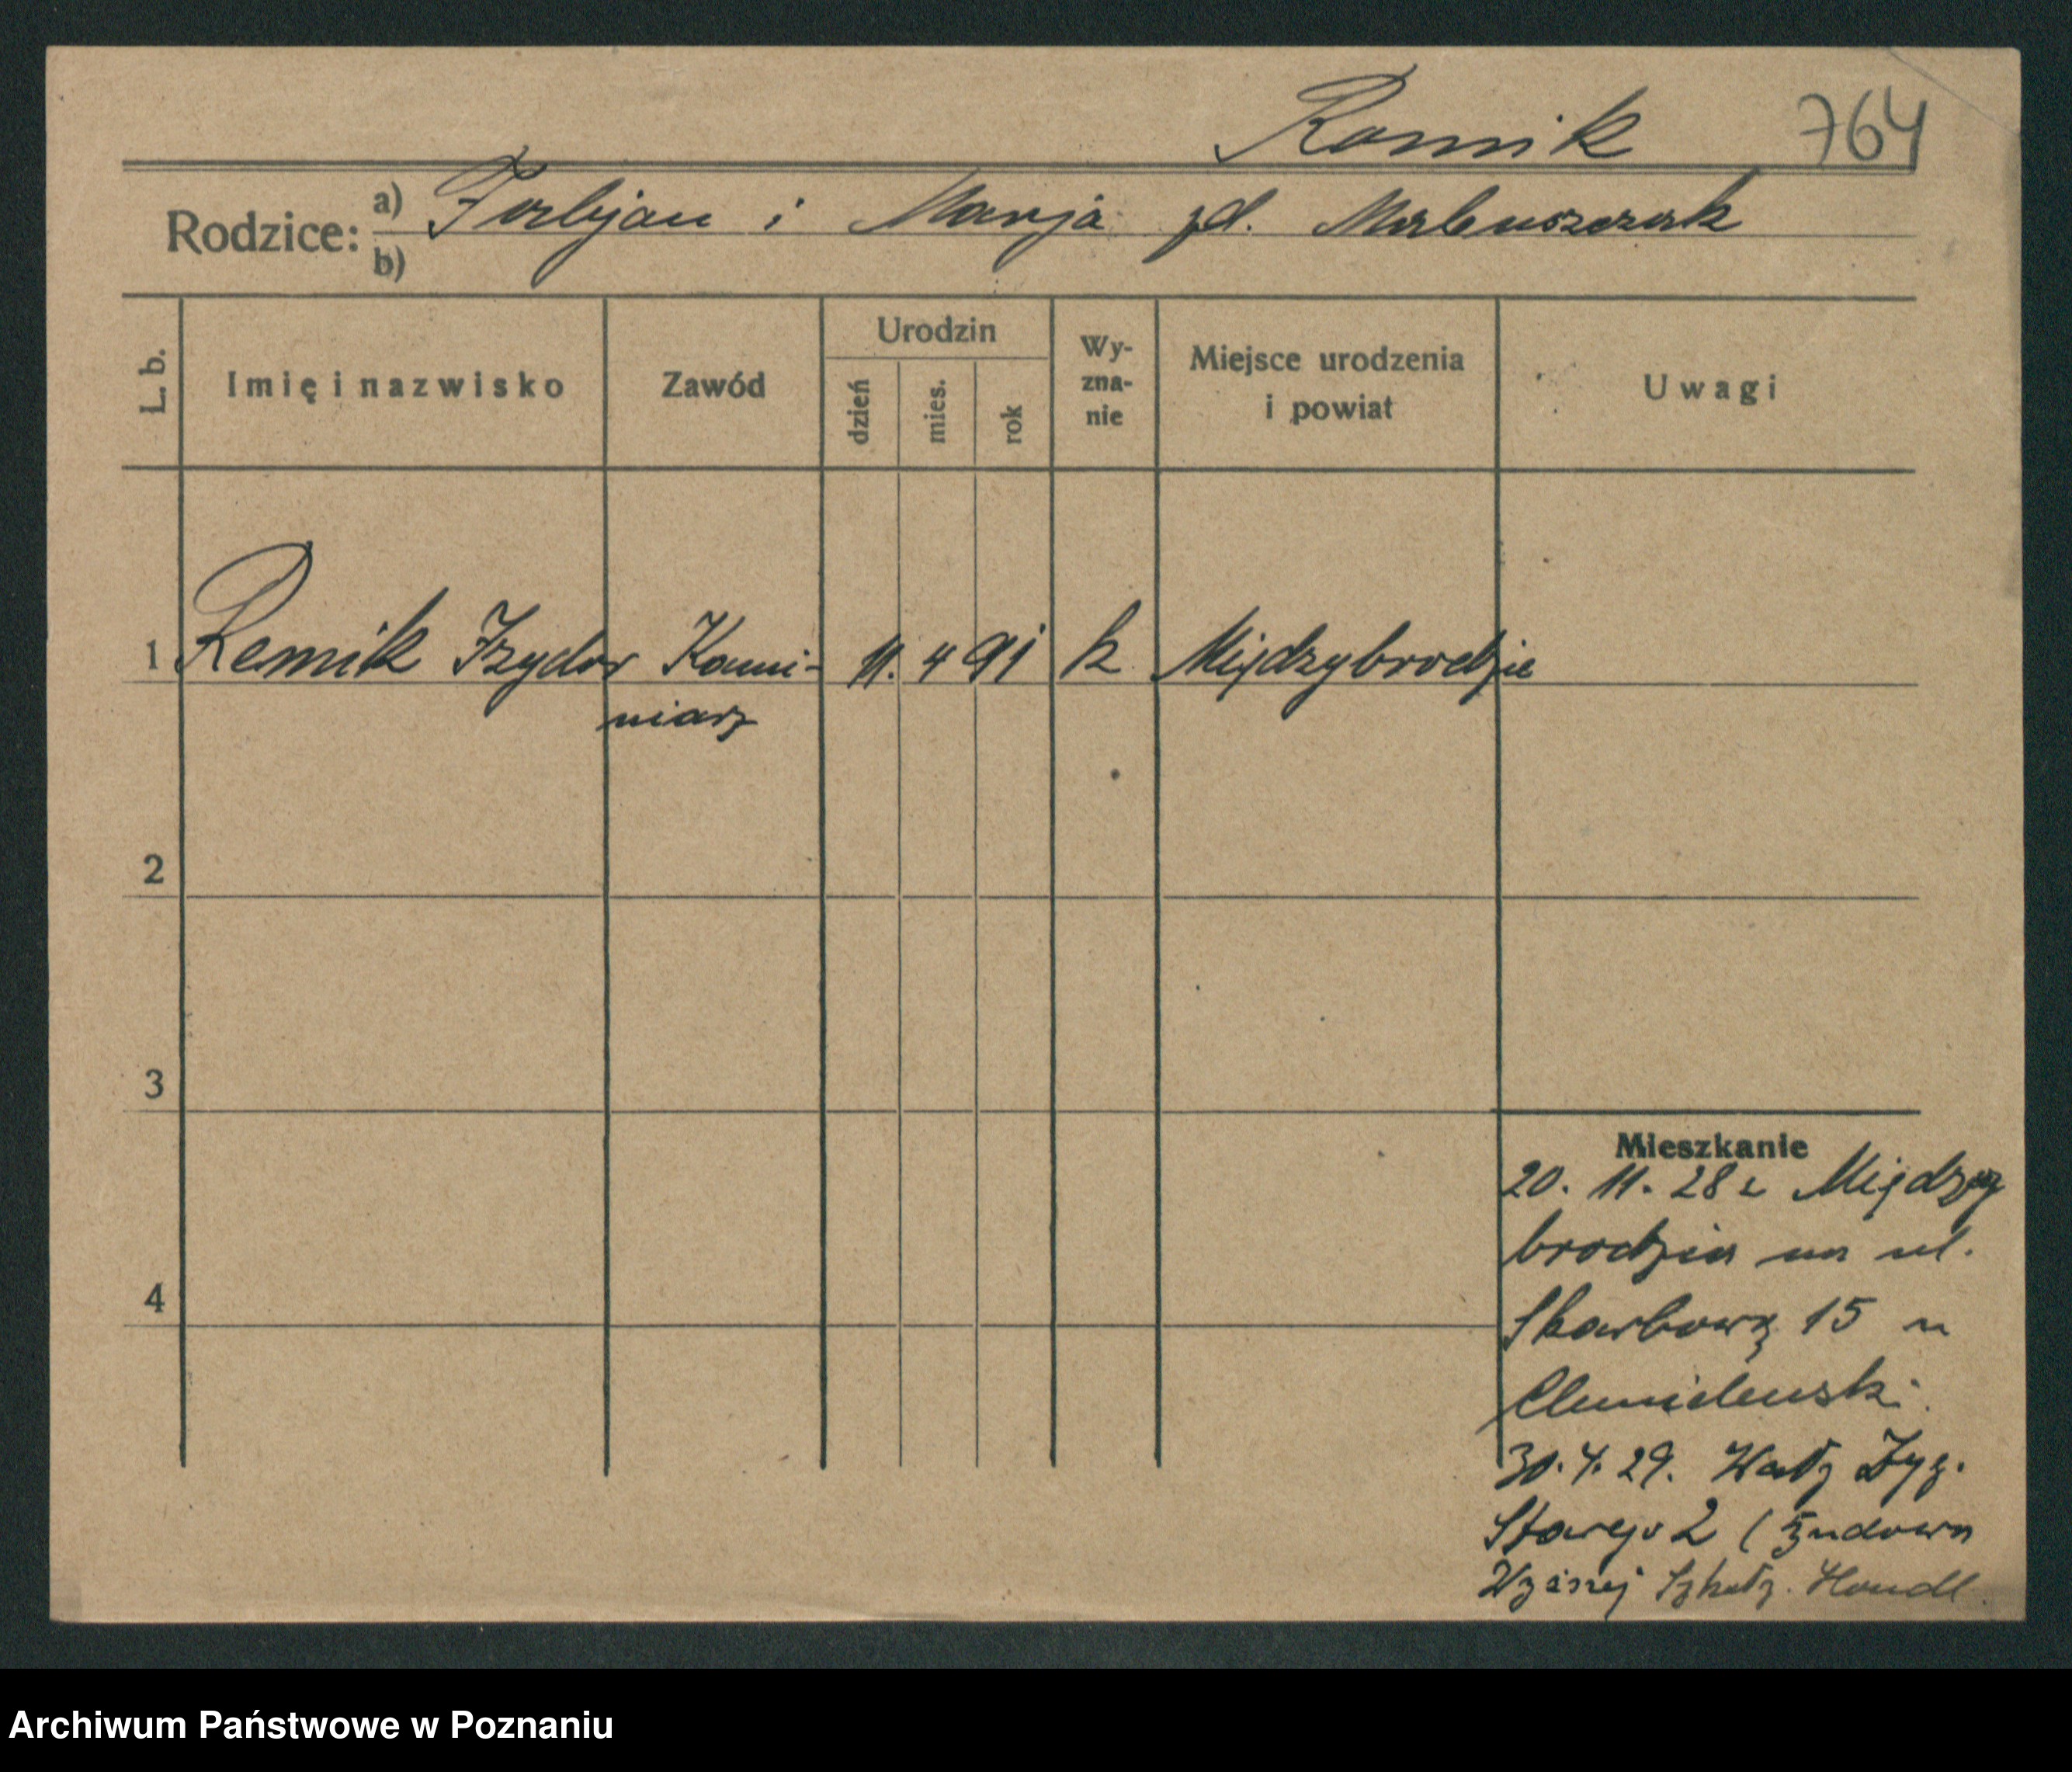 Romik 764
Rodzice: a) Fabjan i Marja zd. Matuszczak
b)
L. b. Imię i nazwisko Zawód Urodzin dzień mies. rok Wy-zna-nie Miejsce urodzenia i powiat Uwagi
1 Remik Izydor Kami- 11. 4 91 k Międzybrodzie
niarz
2
3
Mieszkanie
20. 11. 28 z Między
4
brodzia na ul.
Skarbową 15 u
30. 4. 29. Wały Zyg.
Starego 2 (budowa
Wyższej Szkoły Handl.
Archiwum Państwowe w Poznaniu